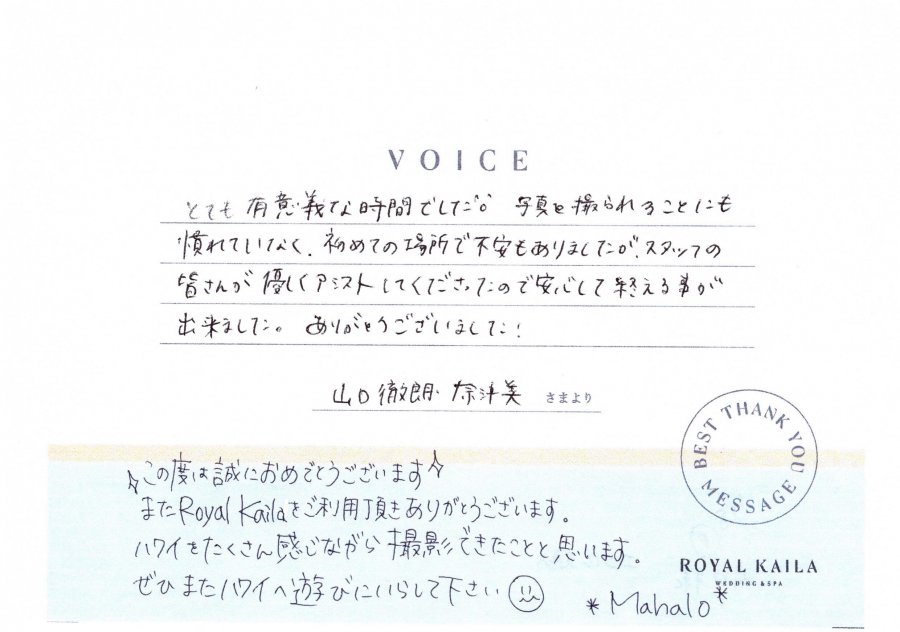 VOICE
とても有意義な時間でした。写真を撮られることにも
慣れていなく、初めての場所で不安もありましたが、スタッフの
皆さんが優しくアシストしてくださったので安心して終える事が
出来ました。ありがとうございました!
山口徹朗・奈津美 さまより
BEST THANK YOU MESSAGE
この度は誠におめでとうございます
またRoyal Kailaをご利用頂きありがとうございます。
ハワイをたくさん感じながら撮影できたことと思います。
ぜひまたハワイへ遊びにいらして下さい
ROYAL KAILA
WEDDING & SPA
*Mahalo*